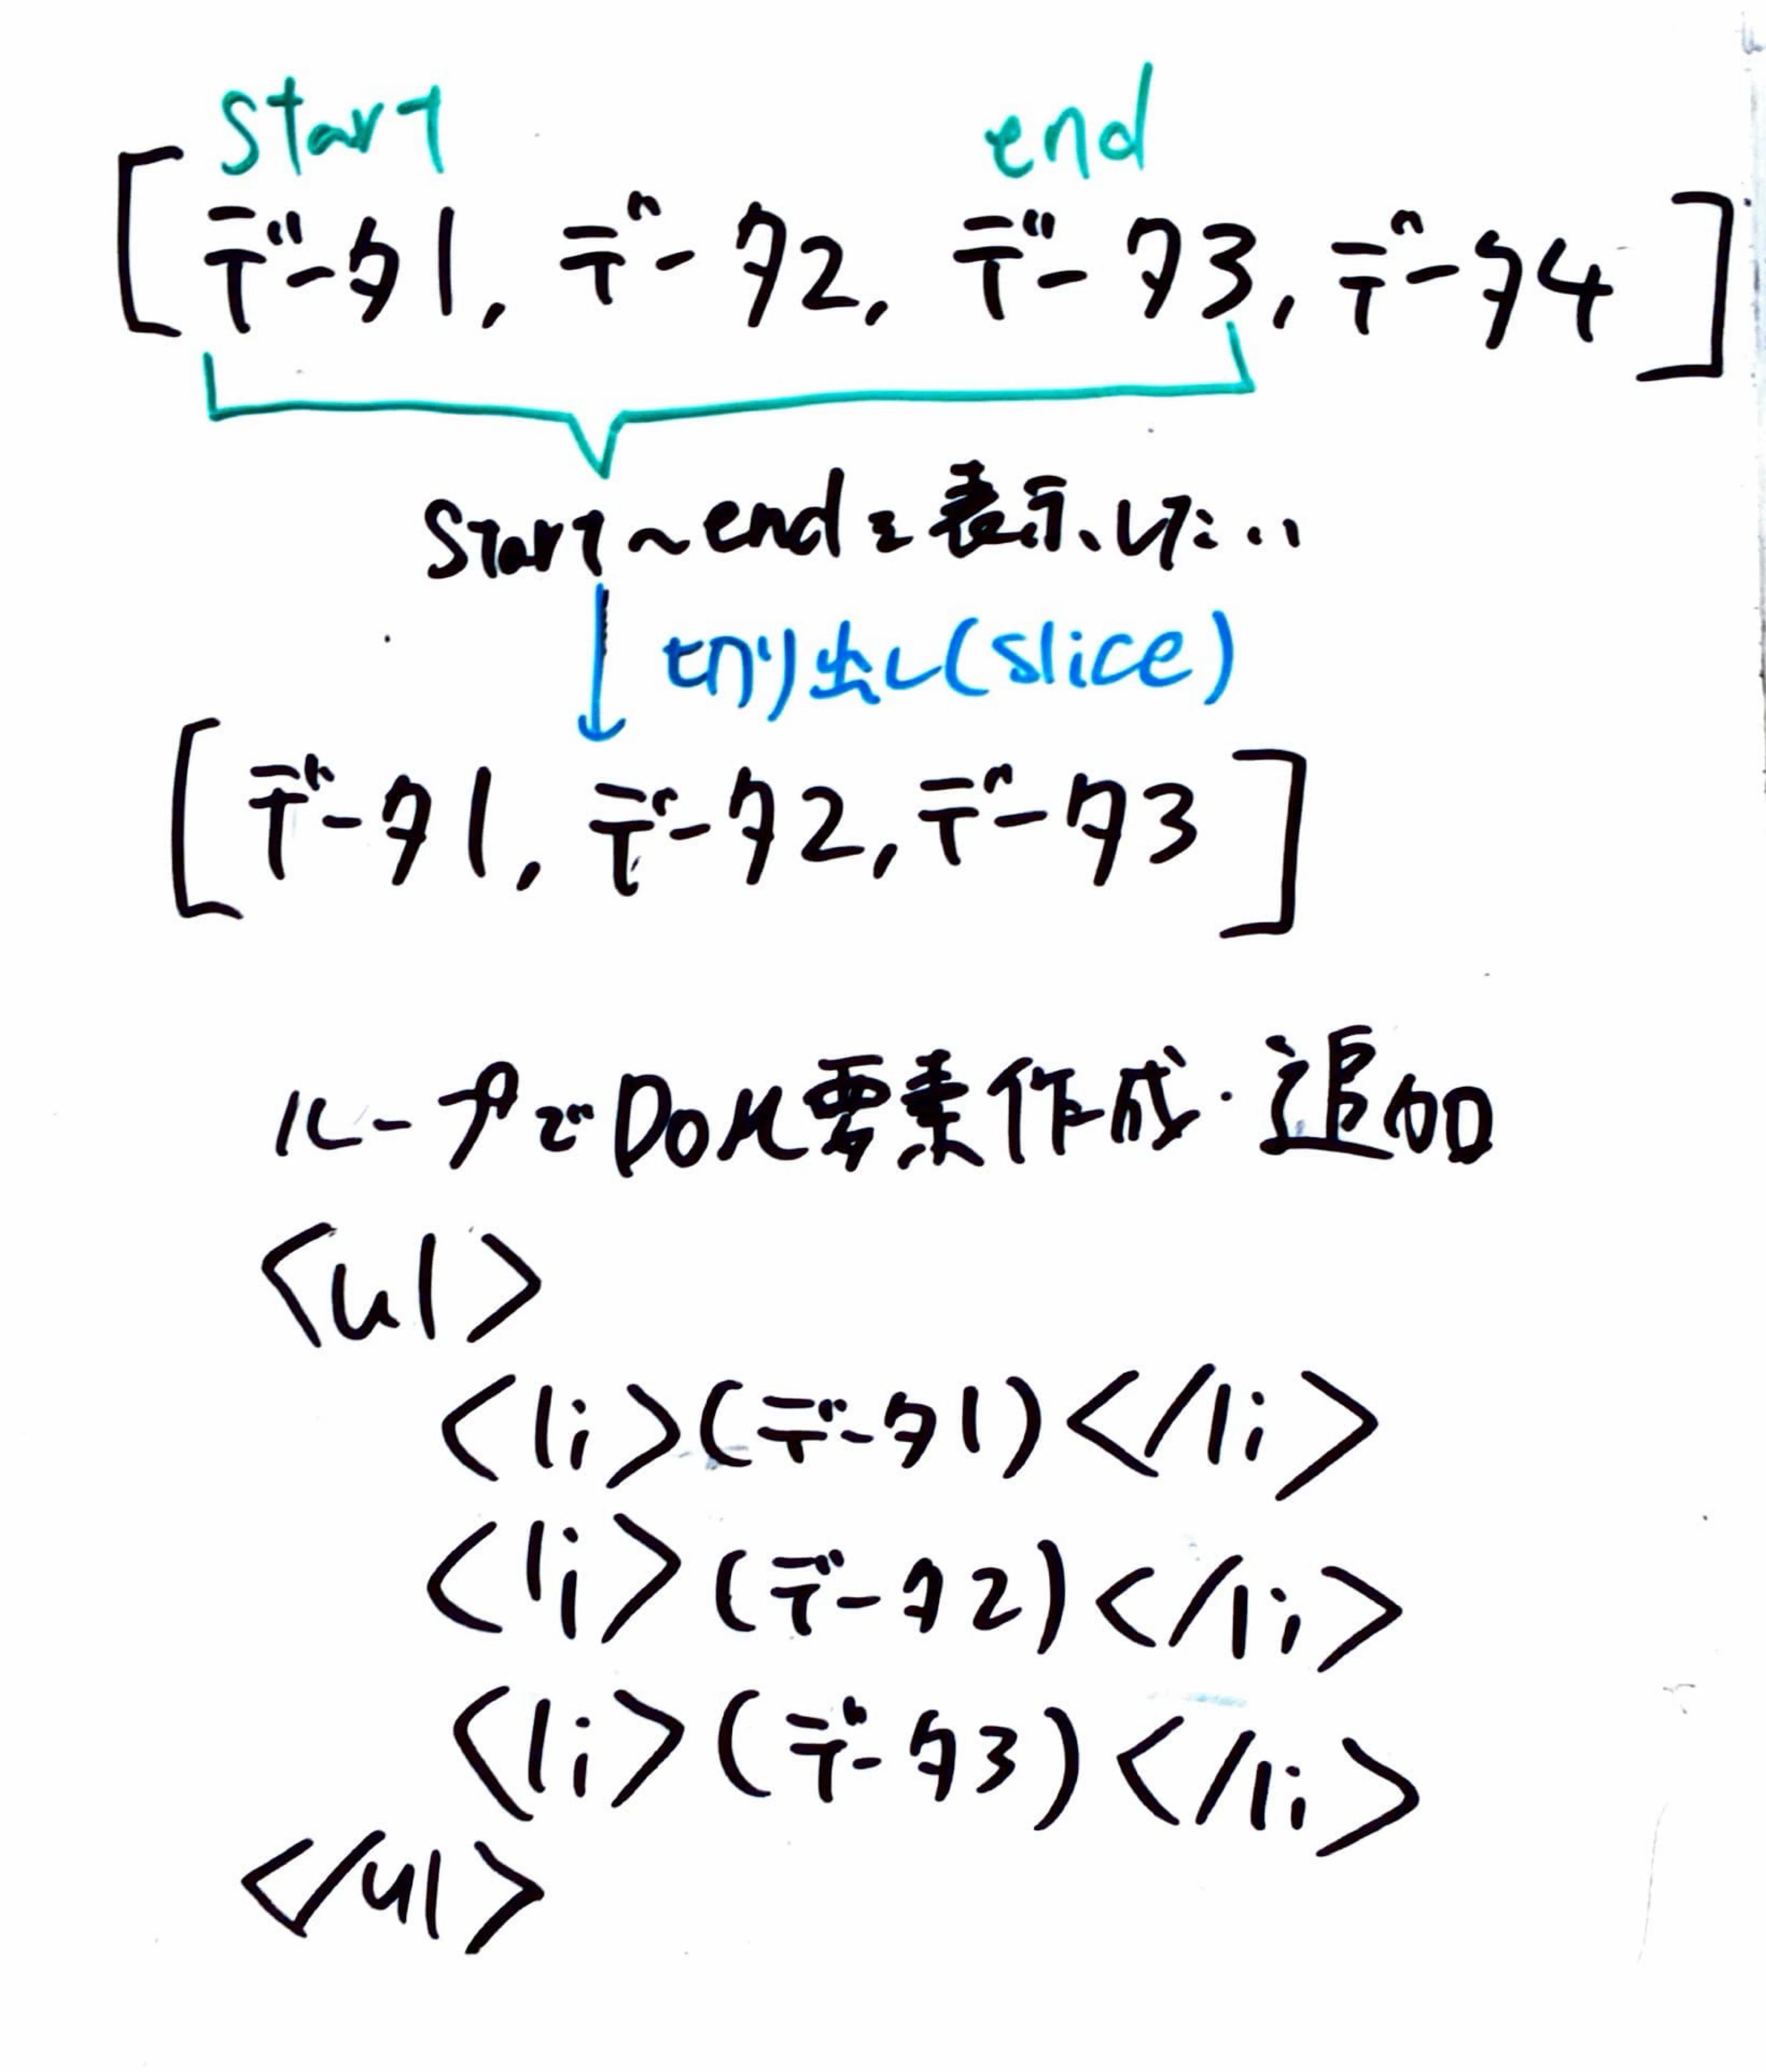 start end
[データ1, データ2, データ3, データ4]
start~endを表示したい
切り出し(slice)
[データ1, データ2, データ3]
ループでDOM要素作成・追加
<ul>
<li>(データ1)</li>
<li>(データ2)</li>
<li>(データ3)</li>
</ul>